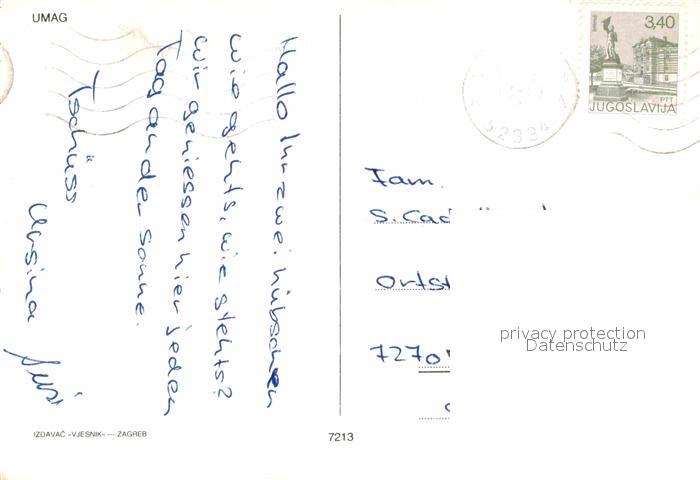 UMAG
Hallo Ihr zwei hübschen
wie gehts, wie stehts?
wir geniessen hier jeden
Tag an der Sonne.
Tschüss
Ursina
3,40
PTT
JUGOSLAVIJA
52394
Fam.
S. Cad
Ortst
7270
privacy protection
Datenschutz
IZDAVAČ »VJESNIK« — ZAGREB
7213